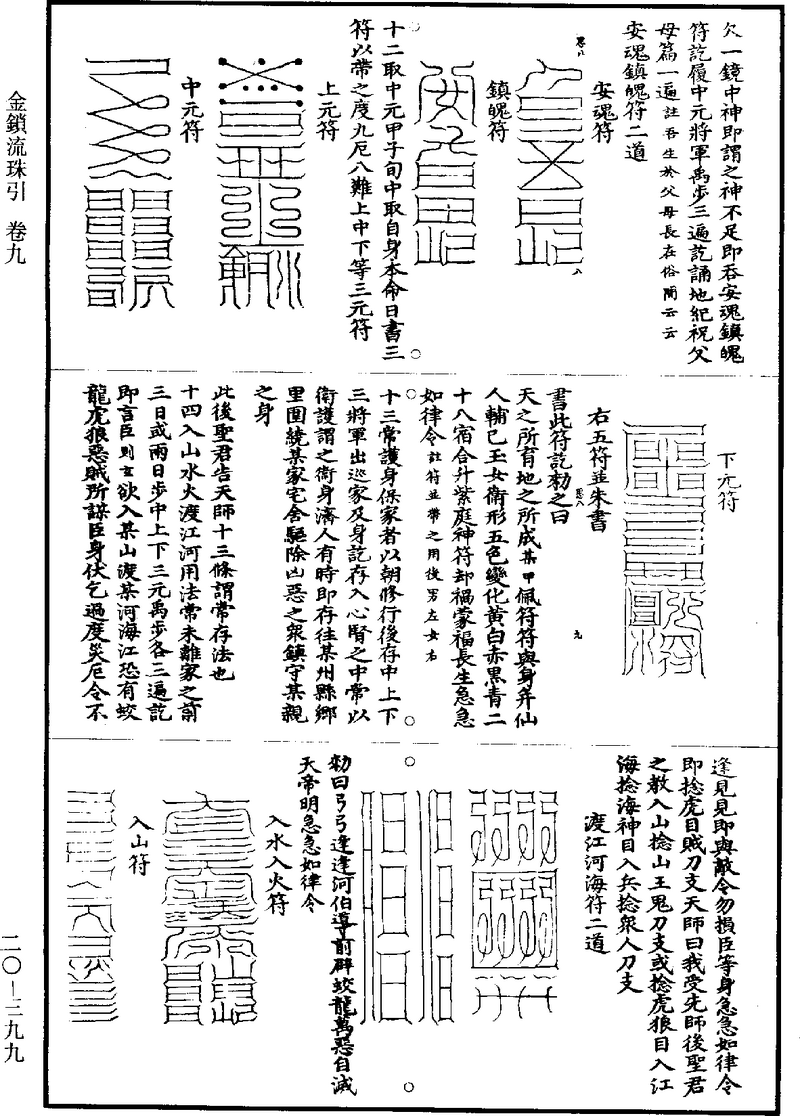 欠一鏡中神即謂之神不足即吞安魂鎮魄
符訖履中元將軍禹步三遍訖誦地紀祝父
母篇一遍註吾生於父母長在俗間云云
安魂鎮魄符二道
安魂符
鎮魄符
十二取中元甲子旬中取自身本命日書三
符以帶之度九厄八難上中下等三元符
上元符
中元符
下元符
右五符並朱書
書此符訖勑之曰
天之所有地之所成某甲佩符符與身并仙
人輔己玉女衛形五色變化黃白赤黑青二
十八宿合升紫庭神符却禍蒙福長生急急
如律令註符並帶之用後男左女右
十三常護身保家者以朝修行後存中上下
三將軍出巡家及身訖存入心腎之中常以
衛護謂之衛身濟人有時即存往某州縣鄉
里圍繞某家宅舍驅除凶惡之衆鎮守某親
之身
此後聖君告天師十三條謂常存法也
十四入山水火渡江河用法常未離家之前
三日或兩日步中上下三元禹步各三遍訖
即言臣則玄欲入某山渡某河海江恐有蛟
龍虎狼惡賊所謀臣身伏乞過度災厄令不
逢見見即與敵令勿損臣等身急急如律令
即捻虎目賊刀支天師曰我受先師後聖君
之教入山捻山王鬼刀支或捻虎狼目入江
海捻海神目入兵捻衆人刀支
渡江河海符二道
勑曰弓弓逢逢河伯導前辟蛟龍萬惡自滅
天帝明急急如律令
入水入火符
入山符
金鎖流珠引 卷九
二〇－三九九